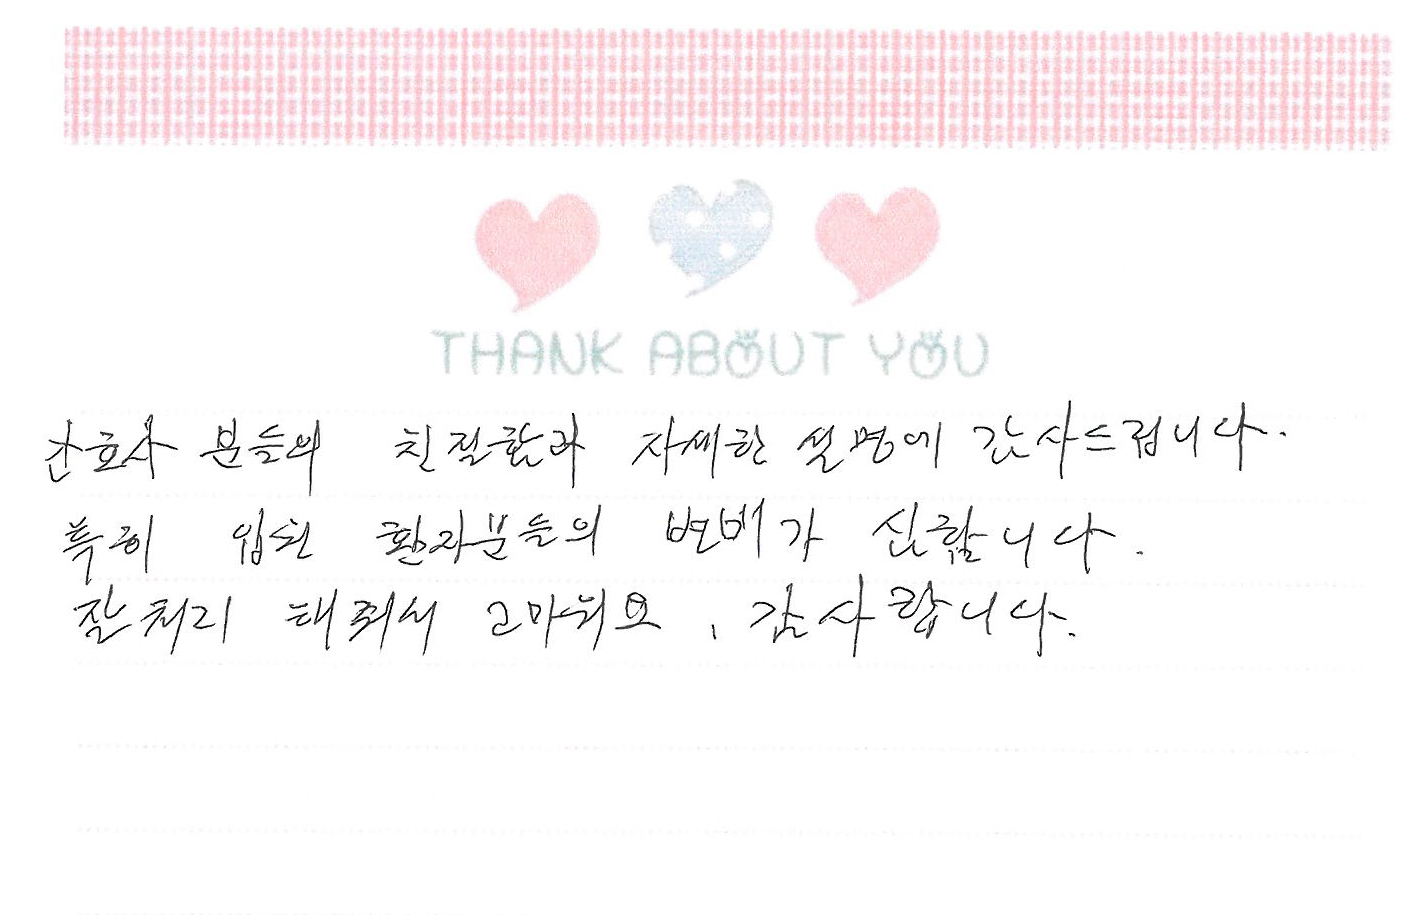 THANK ABOUT YOU
간호사 분들의 친절함과 자세한 설명에 감사드립니다.
특히 입원 환자분들의 변비가 심합니다.
잘처리 해줘서 고마워요, 감사합니다.